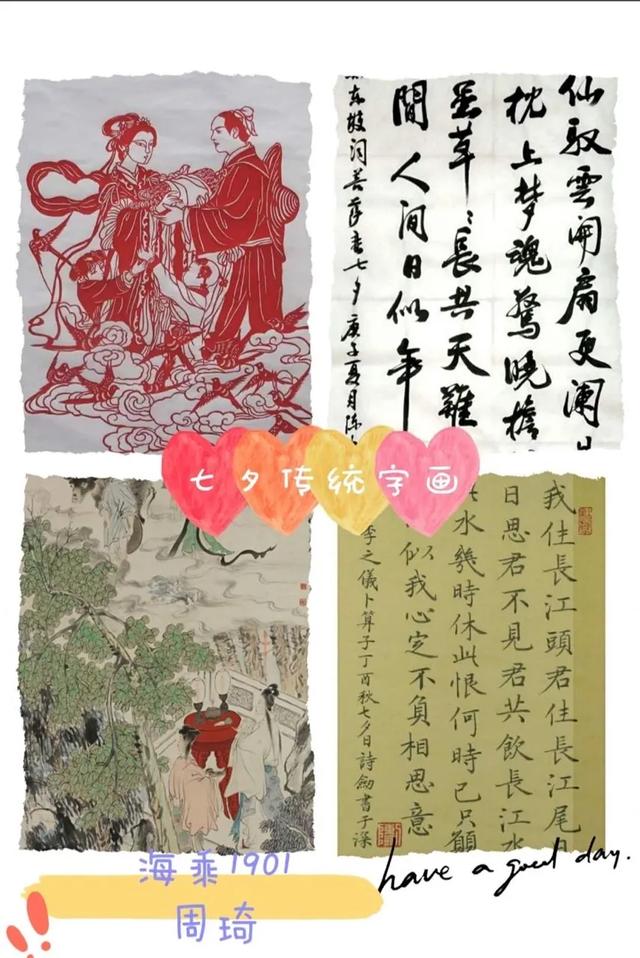 仙驭雲開扇更阑
枕上梦魂驚曉檐
草草長共天難
間人間日似年
东坡詞菩薩蛮七夕庚子夏月陈
七夕传统字画
我住長江頭君住長江尾日
日思君不見君共飲長江水
水幾時休此恨何時已只願
似我心定不負相思意
李之儀卜算子丁酉秋七夕日詩劍書于深
海乘1901
周琦
have a good day.